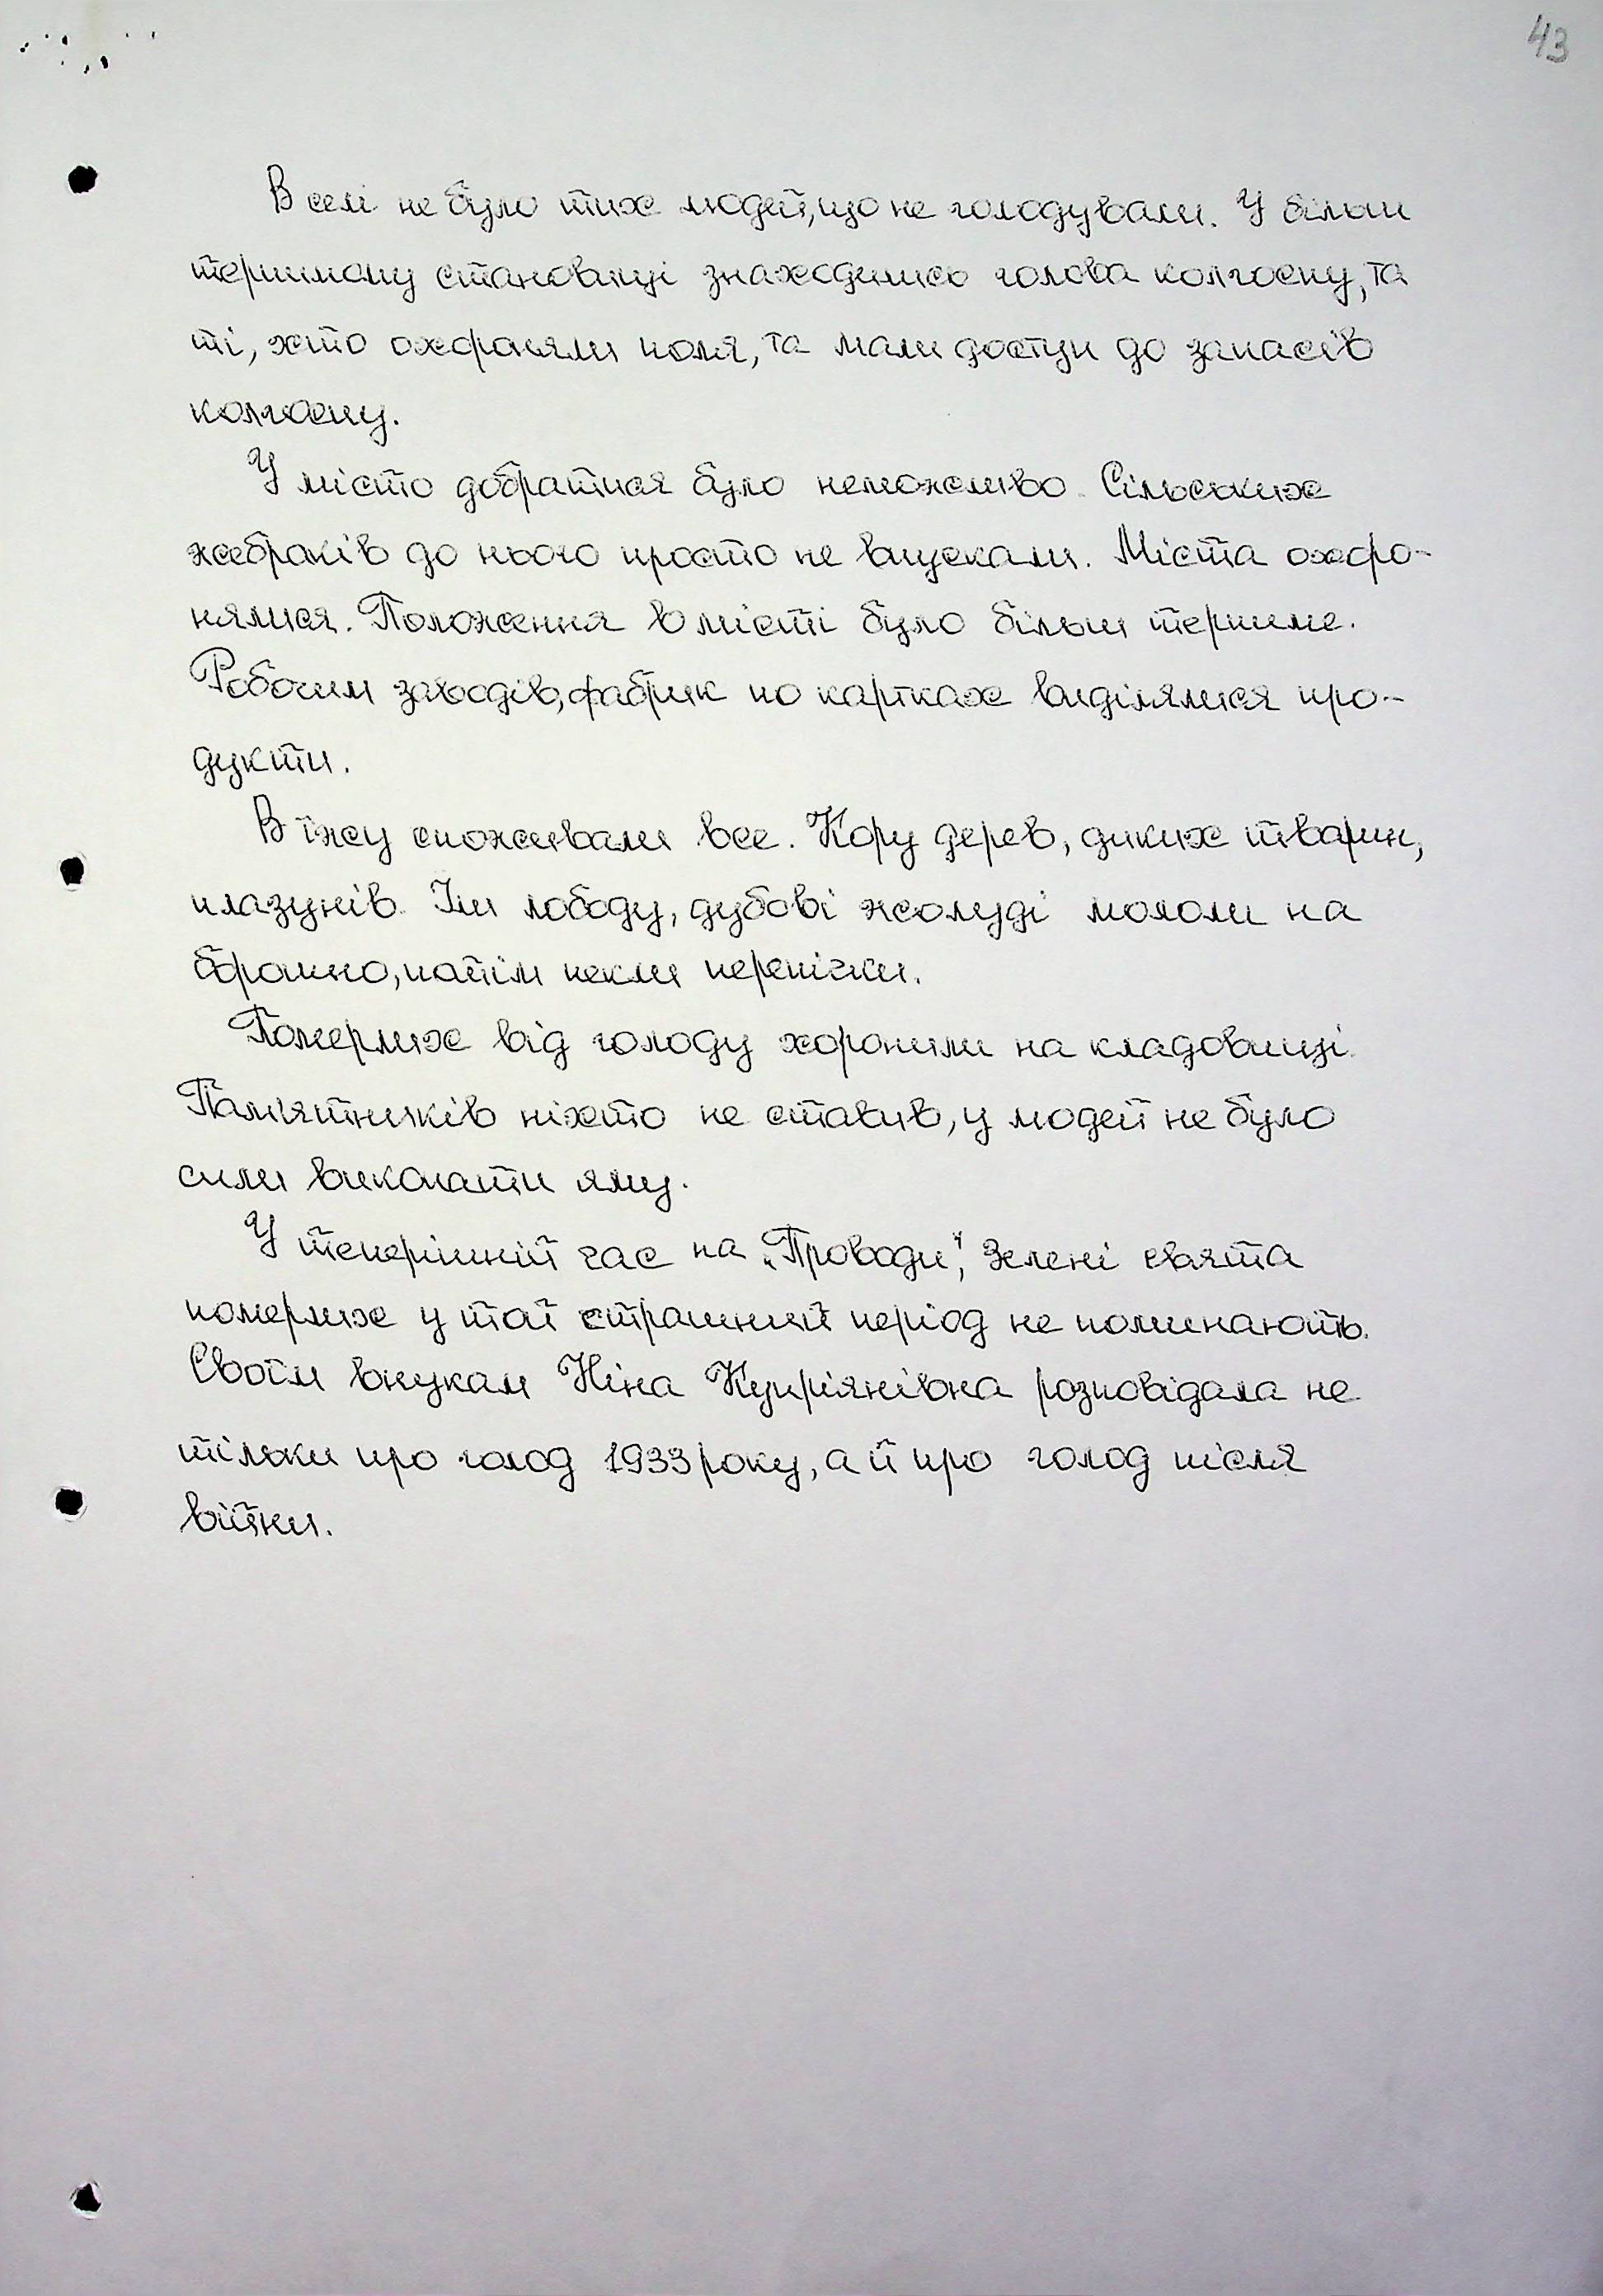 43
В селі не було тих людей, що не голодували. У більш
терпимому становищі знаходились голова колгоспу, та
ті, хто охороняли поля, та мали доступ до запасів
колгоспу.
У місто добратися було неможливо. Сільських
жебраків до нього просто не впускали. Міста охоро-
нялися. Положення в місті було більш терпиме.
Робочим заводів, фабрик по картках виділялися про-
дукти.
В їжу споживали все. Кору дерев, диких тварин,
плазунів. Їли лободу, дубові жолуді мололи на
борошно, потім пекли перепічки.
Померлих від голоду хоронили на кладовищі.
Пам'ятників ніхто не ставив, у людей не було
сили викопати яму.
У теперішній час на „Проводи", Зелені свята
померлих у той страшний період не поминають.
Своїм внукам Ніна Купріянівна розповідала не
тільки про голод 1933 року, а й про голод після
війни.